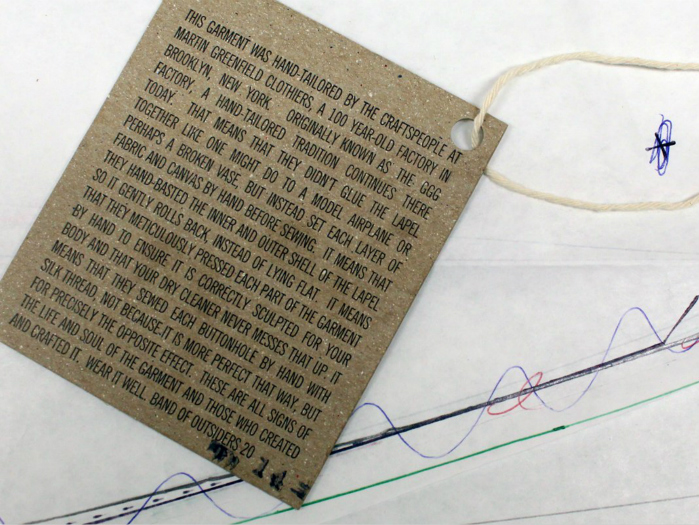 THIS GARMENT WAS HAND-TAILORED BY THE CRAFTSPEOPLE AT
MARTIN GREENFIELD CLOTHIERS, A 100 YEAR-OLD FACTORY IN
BROOKLYN, NEW YORK. ORIGINALLY KNOWN AS THE GGG
FACTORY, A HAND-TAILORED TRADITION CONTINUES THERE
TODAY. THAT MEANS THAT THEY DIDN'T GLUE THE LAPEL
TOGETHER LIKE ONE MIGHT DO TO A MODEL AIRPLANE OR
PERHAPS A BROKEN VASE, BUT INSTEAD SET EACH LAYER OF
FABRIC AND CANVAS BY HAND BEFORE SEWING. IT MEANS THAT
THEY HAND-BASTED THE INNER AND OUTER SHELL OF THE LAPEL
SO IT GENTLY ROLLS BACK, INSTEAD OF LYING FLAT. IT MEANS
THAT THEY METICULOUSLY PRESSED EACH PART OF THE GARMENT
BY HAND TO ENSURE IT IS CORRECTLY SCULPTED FOR YOUR
BODY AND THAT YOUR DRY CLEANER NEVER MESSES THAT UP. IT
MEANS THAT THEY SEWED EACH BUTTONHOLE BY HAND WITH
SILK THREAD, NOT BECAUSE IT IS MORE PERFECT THAT WAY, BUT
FOR PRECISELY THE OPPOSITE EFFECT. THESE ARE ALL SIGNS OF
THE LIFE AND SOUL OF THE GARMENT AND THOSE WHO CREATED
AND CRAFTED IT. WEAR IT WELL. BAND OF OUTSIDERS 20